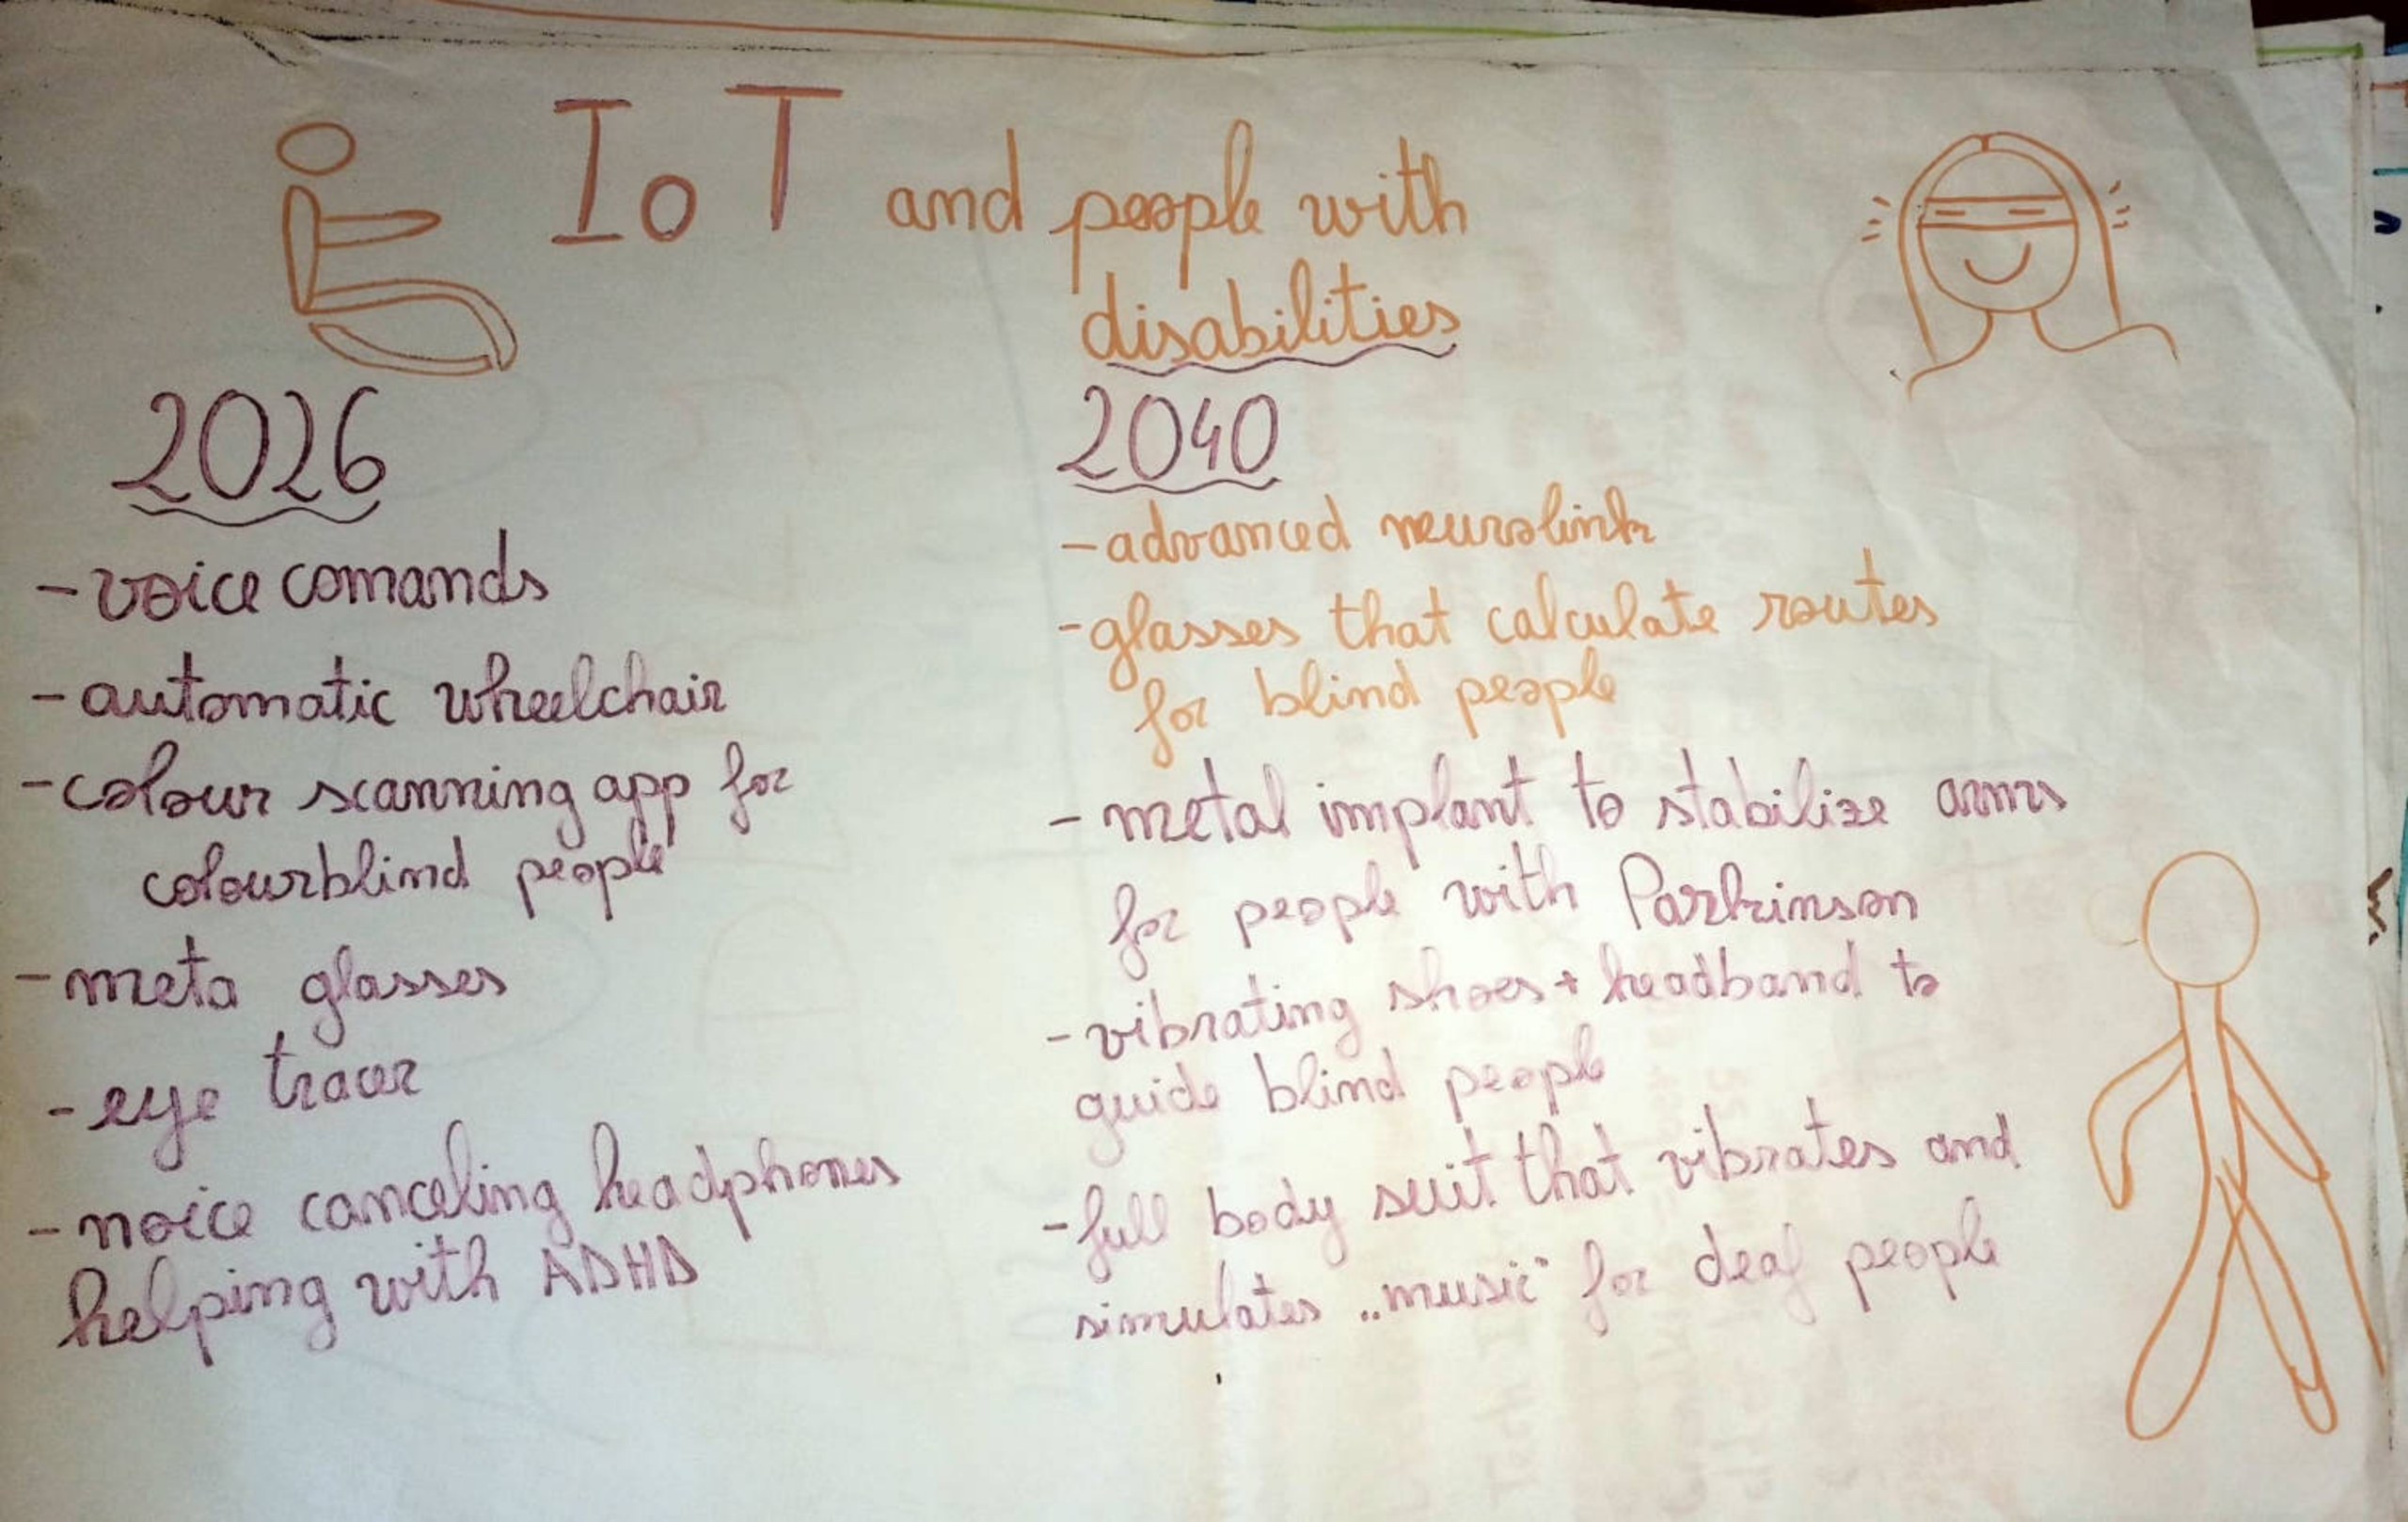 IoT and people with
disabilities
2026
- voice comands
- automatic wheelchair
- colour scanning app for
colourblind people
- meta glasses
- eye tracer
- noice canceling headphones
helping with ADHD
2040
- advanced neuralink
- glasses that calculate routes
for blind people
- metal implant to stabilize arms
for people with Parkinson
- vibrating shoes + headband to
guide blind people
- full body suit that vibrates and
simulates „music" for deaf people